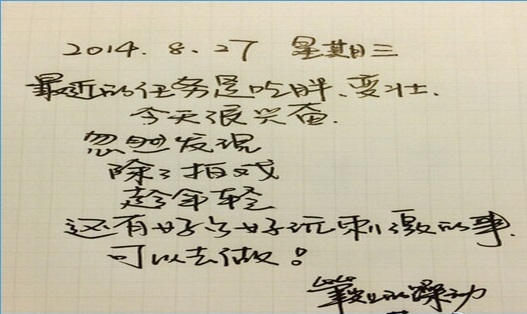 2014.8.27 星期三
最近的任务是吃胖、变壮.
今天很兴奋.
忽然发现
除了拍戏
趁年轻
还有好多好玩刺激的事.
可以去做!
的躁动